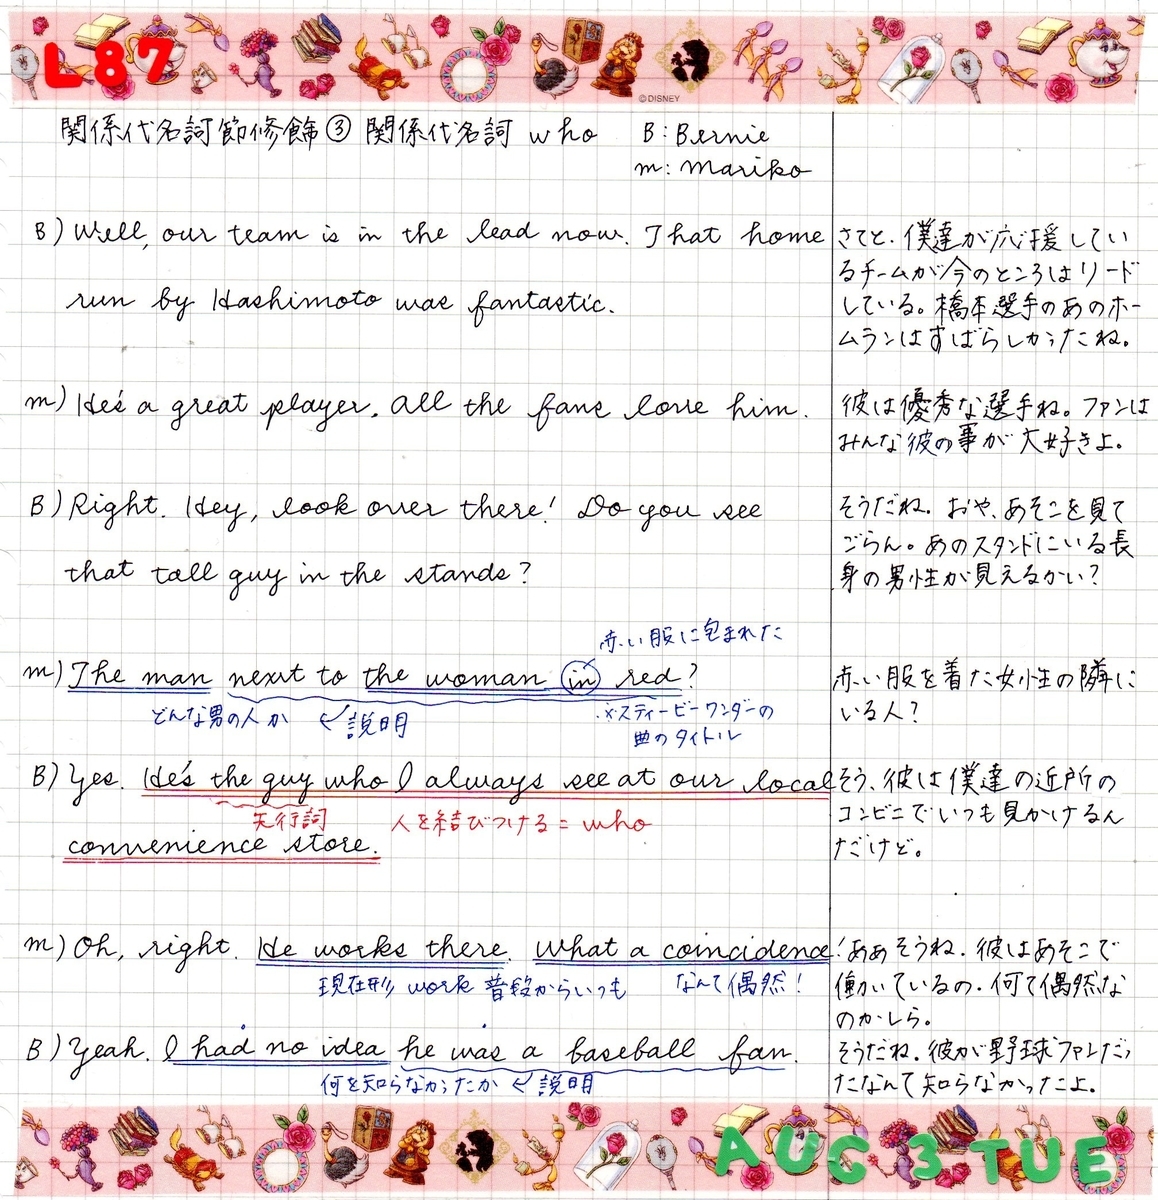 L87
©DISNEY
関係代名詞節修飾③ 関係代名詞 who B: Bernie
m: Mariko
B) Well, our team is in the lead now. That home
run by Hashimoto was fantastic.
さてと、僕達が応援してい
るチームが今のところはリード
している。橋本選手のあのホー
ムランはすばらしかったね。
m) He's a great player. All the fans love him.
彼は優秀な選手ね。ファンは
みんな彼の事が大好きよ。
B) Right. Hey, look over there! Do you see
that tall guy in the stands?
そうだね。おや、あそこを見て
ごらん。あのスタンドにいる長
身の男性が見えるかい?
赤い服に包まれた
m) The man next to the woman in red?
どんな男の人か ↙説明
※スティービーワンダーの
曲のタイトル
赤い服を着た女性の隣に
いる人?
B) Yes. He's the guy who I always see at our local
先行詞 人を結びつける = who
convenience store.
そう、彼は僕達の近所の
コンビニでいつも見かけるん
だけど。
m) Oh, right. He works there. What a coincidence!
現在形 work 普段からいつも なんて偶然!
ああそうね、彼はあそこで
働いているの。何て偶然な
のかしら。
B) Yeah. I had no idea he was a baseball fan.
何を知らなかったか ↙説明
そうだね。彼が野球ファンだっ
たなんて知らなかったよ。
AUG 3 TUE